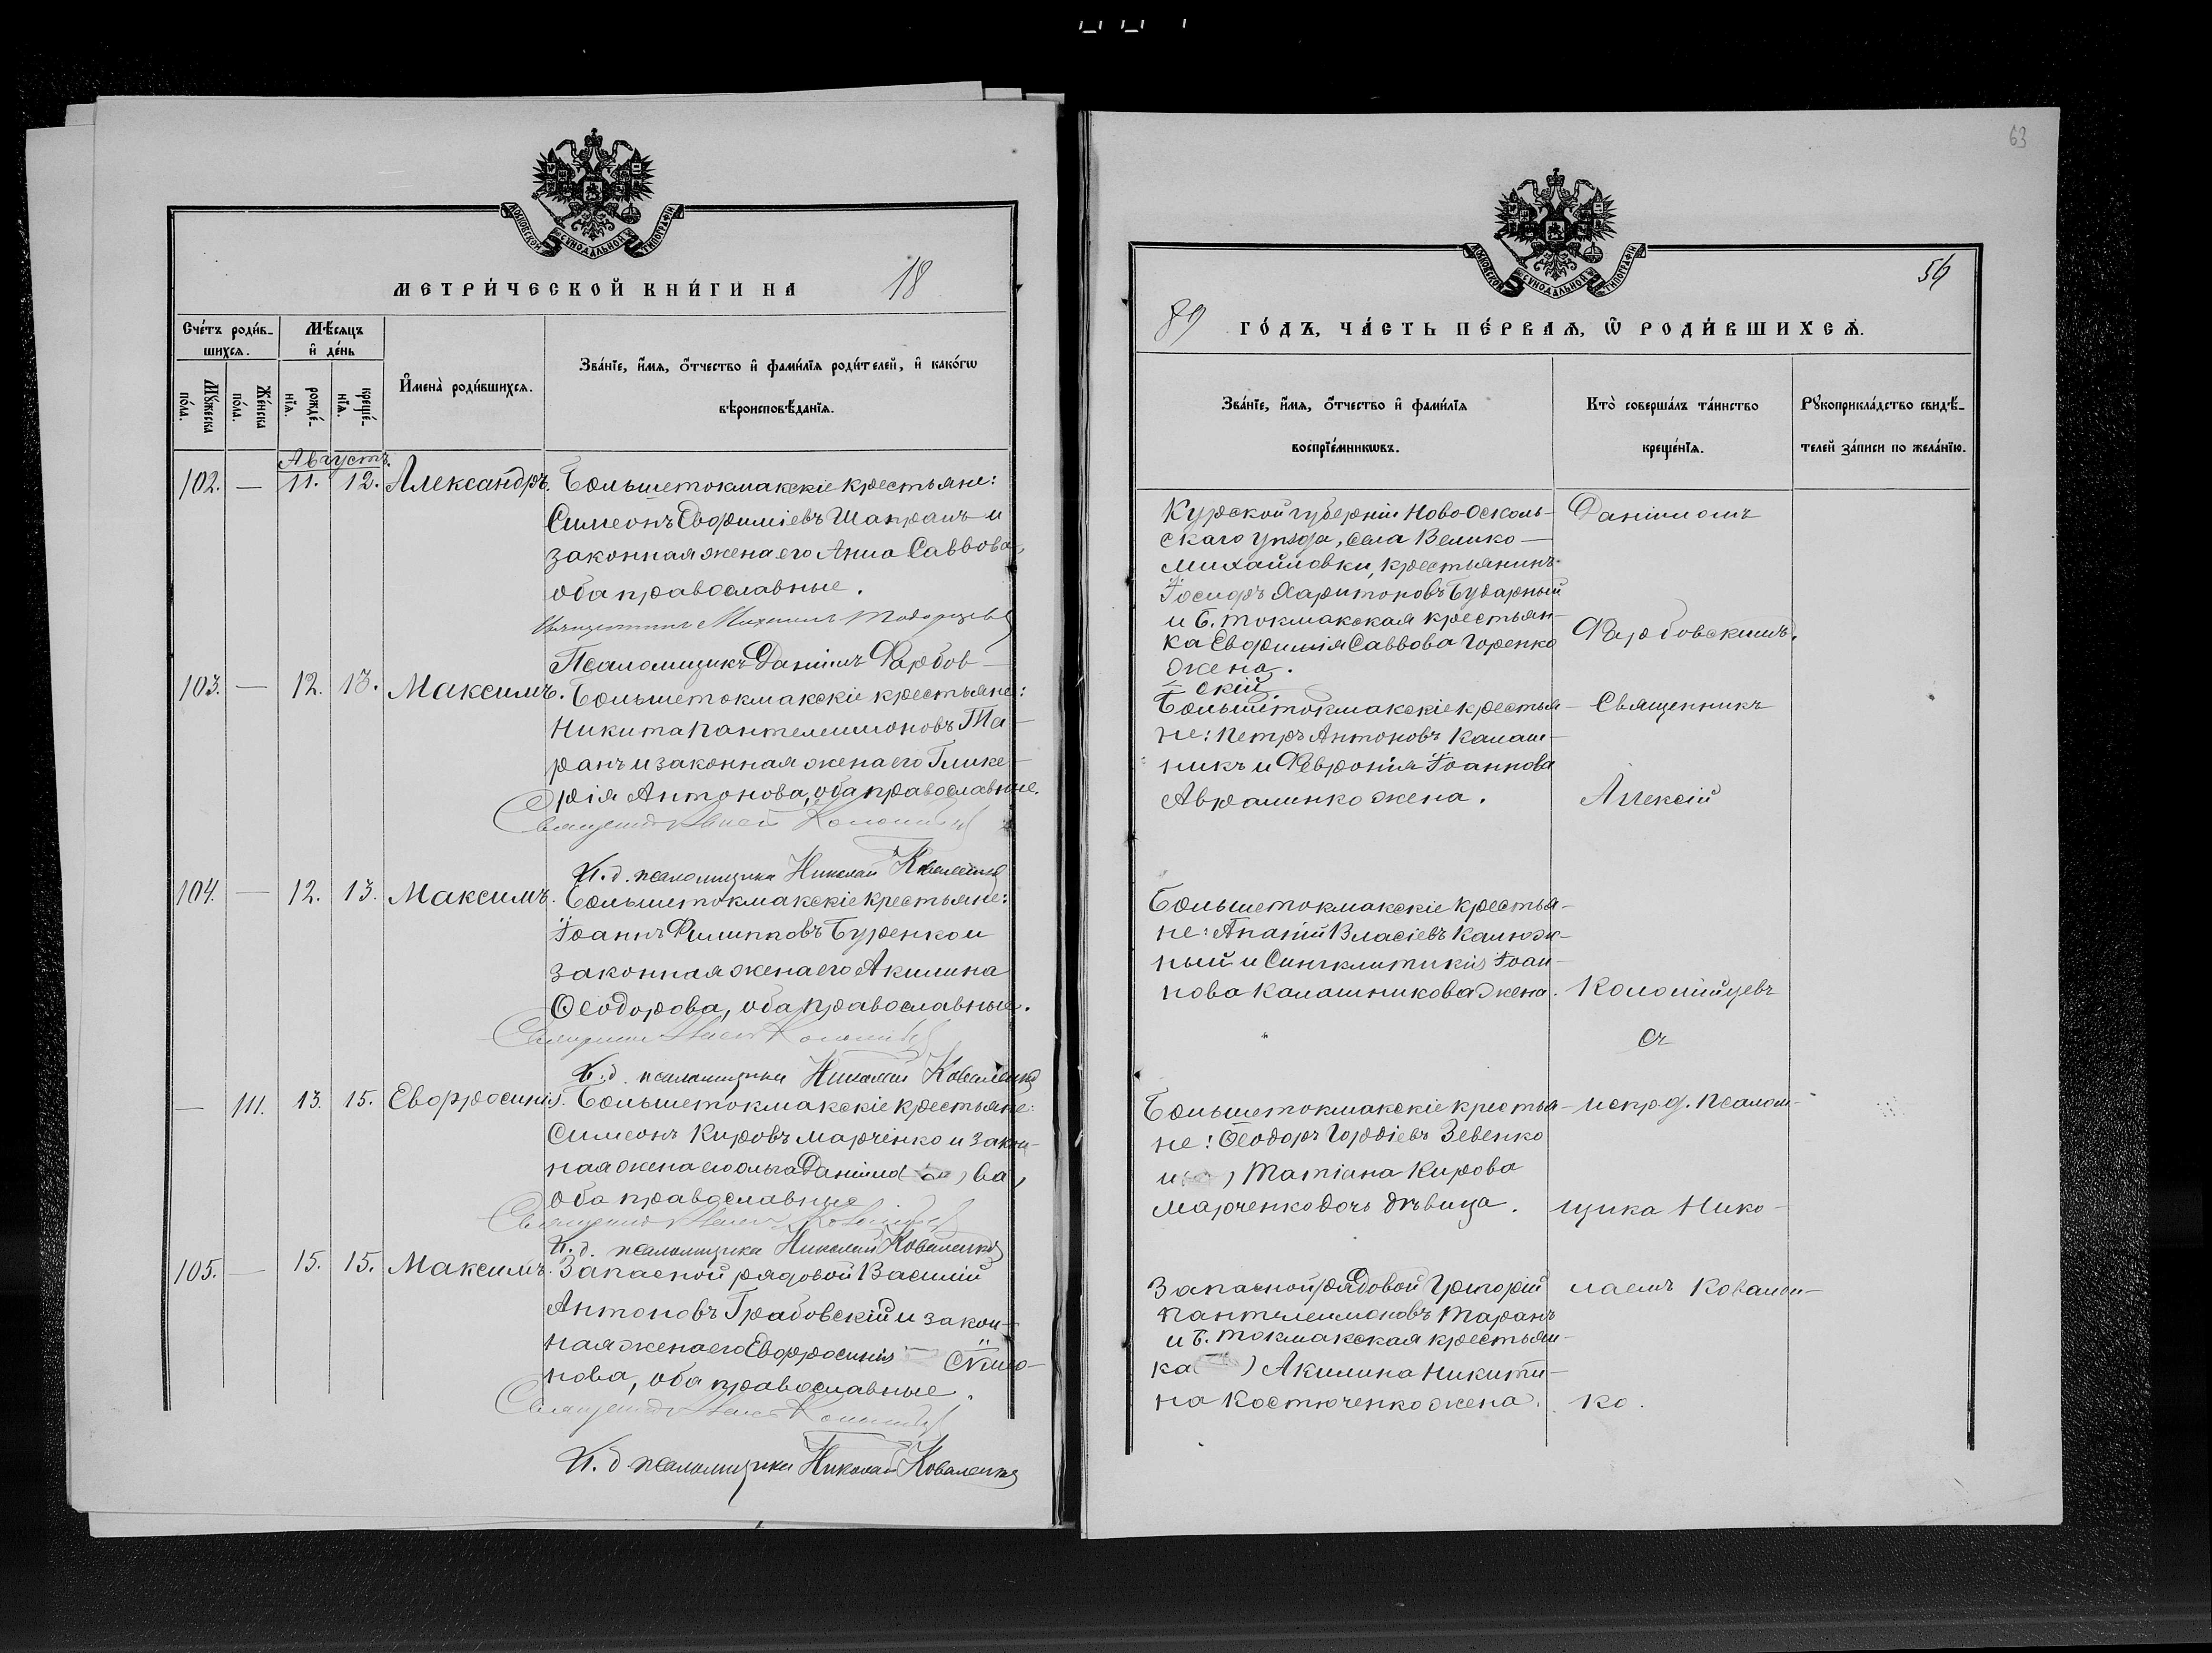 63
МОСКОВСКОЙ СѴНОДАЛЬНОЙ ТИПОГРАФІИ
МЕТРИ́ЧЕСКОЙ КНИ́ГИ НА 18
Сче́тъ роди́в-
шихсѧ.
Мѣ́сѧцъ
и҆ де́нь
Мꙋ́жеска
по́ла.
Же́нска
по́ла.
рожде́-
нїѧ.
креще́-
нїѧ.
И҆мена̀ роди́вшихсѧ.
Зва́нїе, и҆́мѧ, ѻ҆́тчество и҆ фами́лїѧ роди́телей, и҆ како́гѡ
вѣроисповѣ́данїѧ.
Августъ.
102. — 11. 12. Александръ. Большетокмакскіе крестьяне:
Симеонъ Евфиміевъ Шапранъ и
законная жена его Анна Саввова,
оба православные.
Священникъ Михаилъ
Псаломщикъ Даніилъ Фарбов-
скій
103. — 12. 13. Максимъ. Большетокмакскіе крестьяне:
Никита Пантелеимоновъ Та-
ранъ и законная жена его Глике-
рія Антонова, оба православные.
Священникъ Алексій Коломійцевъ
И. д. псаломщика Николай Коваленко
104. — 12. 13. Максимъ. Большетокмакскіе крестьяне:
Іоаннъ Филипповъ Буренко и
законная жена его Акилина
Ѳеодорова, оба православные.
Священникъ Алексій Коломійцевъ
И. д. псаломщика Николай Коваленко
— 111. 13. 15. Евфросинія. Большетокмакскіе крестьяне:
Симеонъ Кировъ Марченко и закон-
ная жена его Ольга Даніило( )ва,
оба православные
Священникъ Алексій Коломійцевъ
И. д. псаломщика Николай Коваленко
105. — 15. 15. Максимъ. Запасной рядовой Василій
Антоновъ Грабовскій и закон-
ная жена его Евфросинія Симо-
нова, оба православные.
Священникъ Алексій Коломійцевъ
И. д псаломщика Николай Коваленко
МОСКОВСКОЙ СѴНОДАЛЬНОЙ ТИПОГРАФІИ
56
89 ГО́ДЪ, ЧА́СТЬ ПЕ́РВАѦ, Ѽ РОДИ́ВШИХСѦ.
Зва́нїе, и҆́мѧ, ѻ҆́тчество и҆ фами́лїѧ
воспрїе́мникѡвъ.
Кто̀ соверша́лъ та́инство
креще́нїѧ.
Рꙋкоприкла́дство свидѣ́-
телей за́писи по жела́нїю.
Курской губерніи Ново-Осколь-
скаго уѣзда, села Велико-
михайловки, крестьянинъ
Іосифъ Харитоновъ Бударный
и Б. Токмакская крестьян-
ка Евфимія Саввова Горенко
жена.
Даніиломъ
Фарбовскимъ.
Большетокмакскіе крестья-
не: Петръ Антоновъ Калаш-
никъ и Февронія Іоаннова
Авраменко жена.
Священникъ
Алексій
Большетокмакскіе крестья-
не: Ананій Власіевъ Калюж-
ный и Синклитикія Іоан-
нова Калашникова жена.
Коломійцевъ
съ
Большетокмакскіе крестья-
не: Ѳеодоръ Гордіевъ Зевенко
и ( ) Татіана Кирова
Марченко дочь дѣвица.
испр. д. псалом-
щика Нико-
Запасной рядовой Григорій
Пантелеимоновъ Таранъ
и Б. Токмакская крестьян-
ка( ) Акилина Никити-
на Костюченко жена.
лаемъ Ковален-
ко.